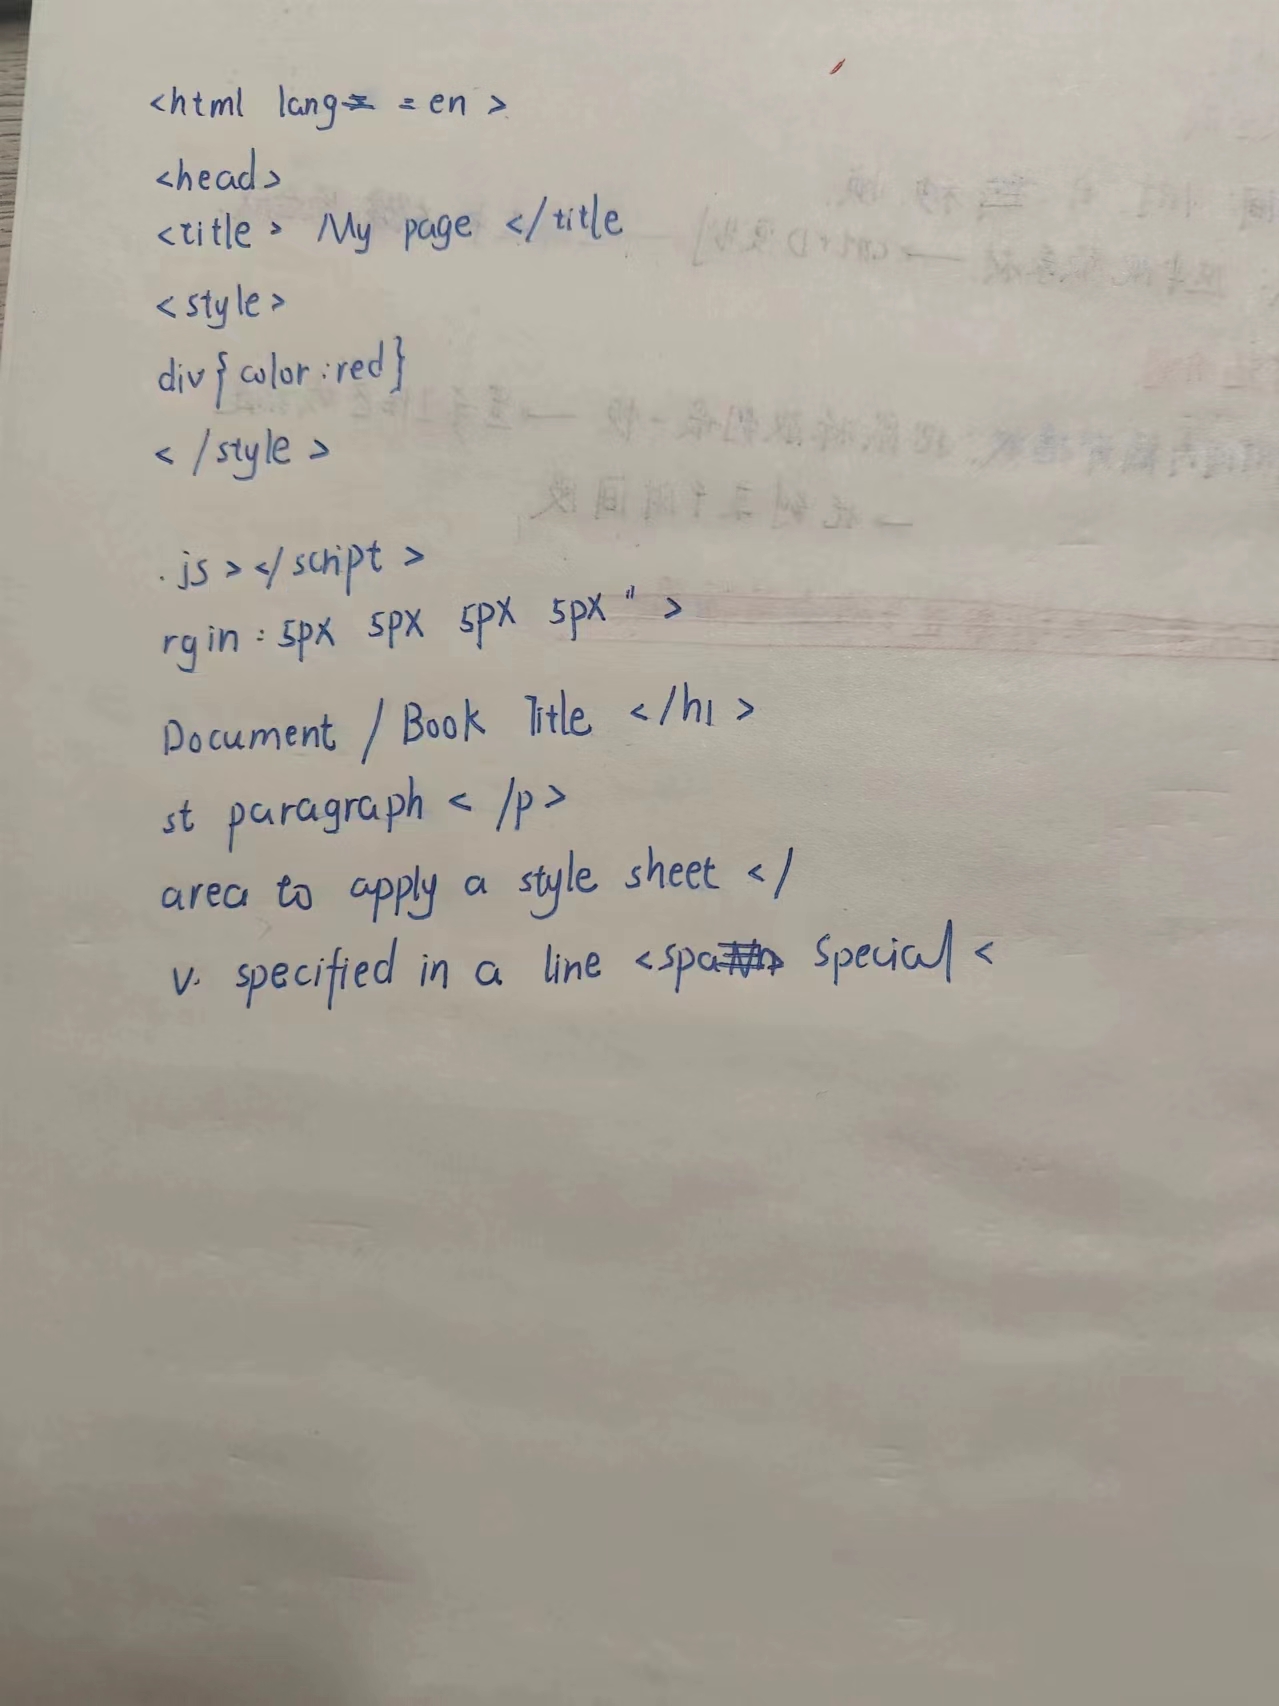 <html lang = en >
<head>
<title> My page </title
<style>
div{color:red}
</style>
.js></script>
rgin: 5px 5px 5px 5px">
Document / Book Title </h1>
st paragraph </p>
area to apply a style sheet </
v. specified in a line <span> Special <